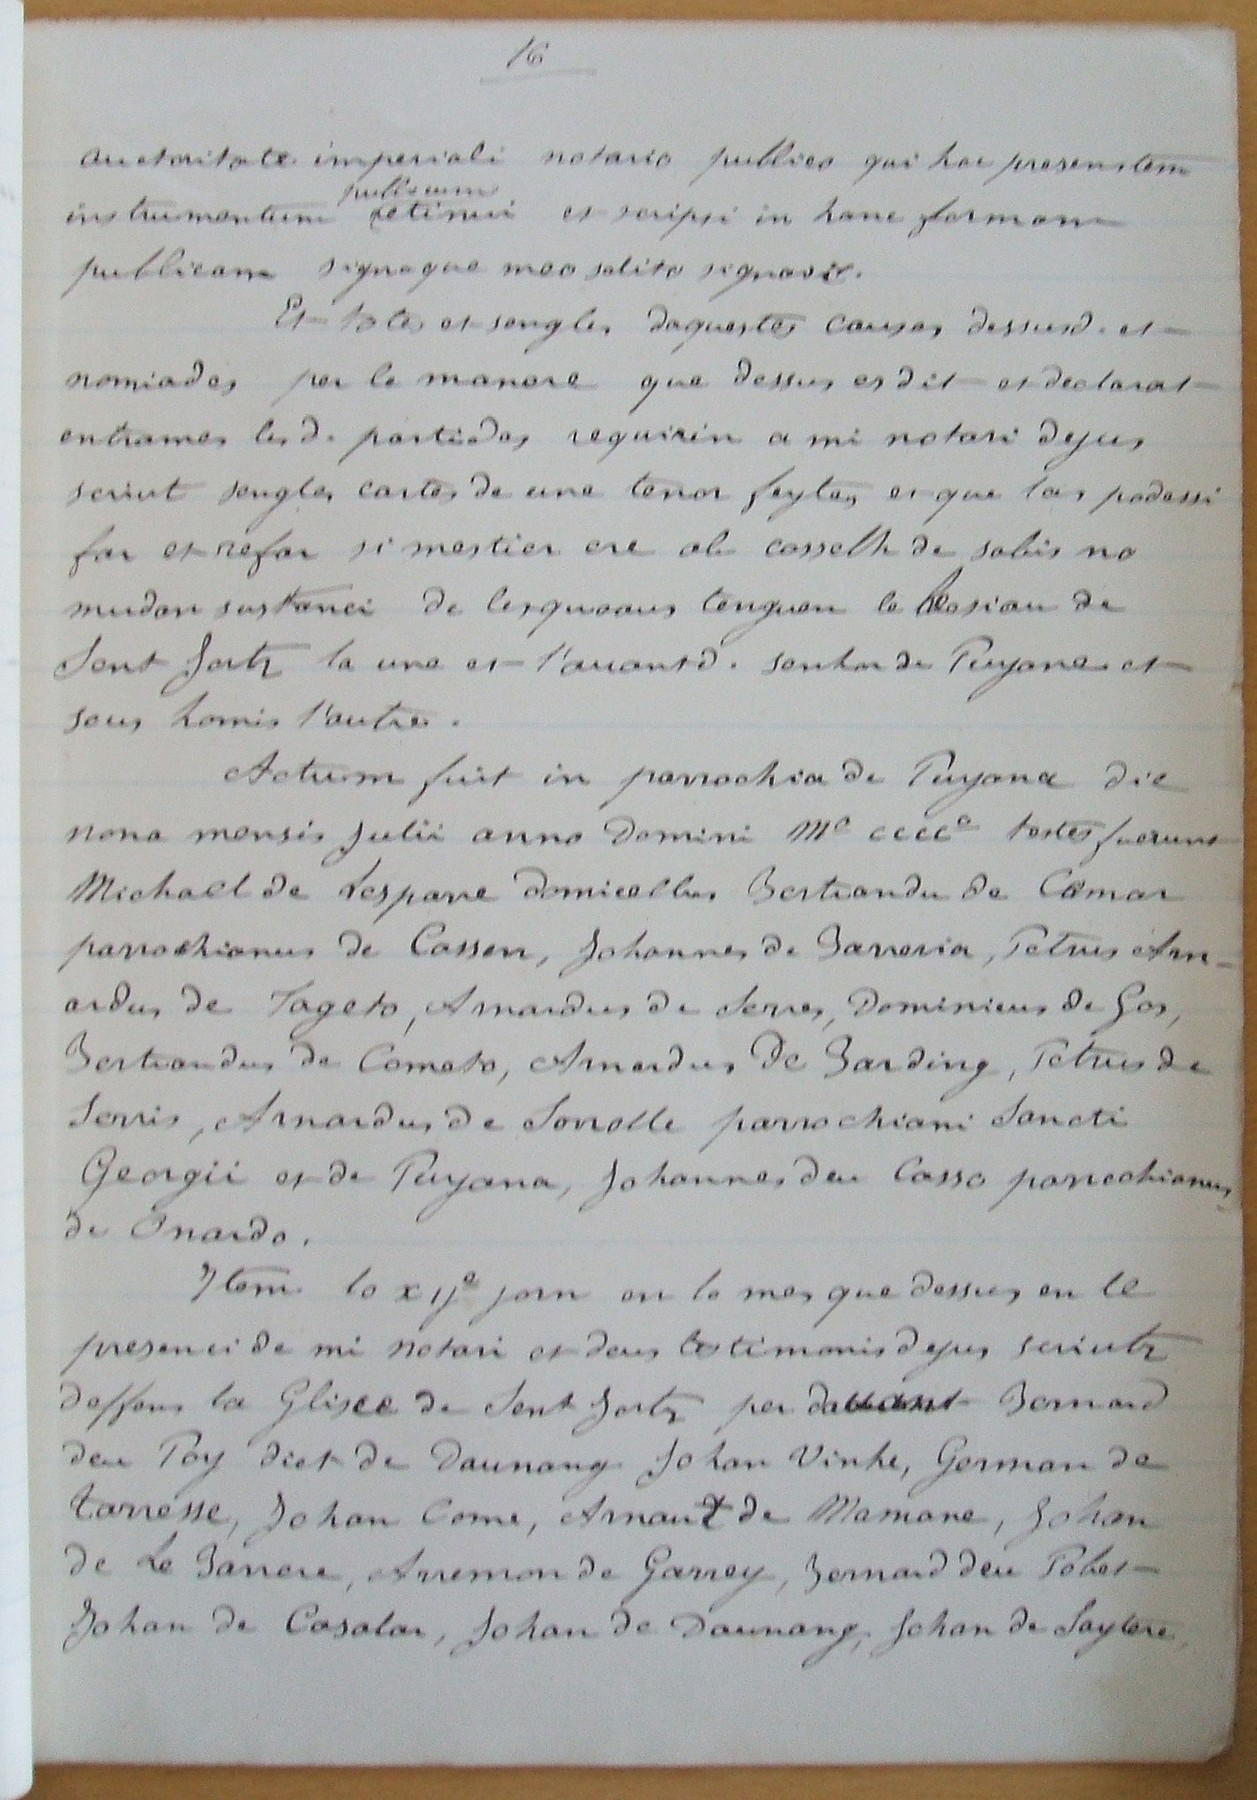 16
auctoritate imperiali notario publico qui hoc presenstem
publicum
instrumentum retinui et scripsi in hanc formam
publicam signoque meo solito signavi.
Et totes et sengles daquestes causes dessusd. et
nomiades per le manere que dessus es dit et declarat
entrames les d. partides requirin a mi notari dejus
scriut sengles cartes de une tenor feytes et que las podessi
far et refar si mestier ere ab cosselh de sabis no
mudan sustanci de lesquoaus tenguen le besiau de
Sent Jortz la une et l'auantd. senhor de Puyane et
sous homis l'autre.
Actum fuit in parrochia de Puyana die
nona mensis Julii anno Domini Mo cccco testes fuerunt
Michael de Lesparre domicellus Bertrandu de Camar
parrochianus de Cassen, Johannes de Barreria, Petrus Arn-
ardus de Tageto, Arnardus de Serres, Dominicus de Gos,
Bertrandus de Cometo, Arnardus de Barding, Petrus de
Serris, Arnardus de Sorrolle parrochiani Sancti
Georgii et de Puyana, Johannes deu Casso parrochianus
de Onardo.
Item lo x ije jorn en lo mes que dessus en le
presenci de mi notari et deus testimonis dejus scriutz
deffens la Glisee de Sent Jortz per davant Bernard
deu Poy dict de Daunang Johan Vinhe, German de
Tarresse, Johan Come, Arnaut de Mamane, Johan
de Le Barrere, Arremon de Garrey, Bernard deu Pobet
Johan de Casalar, Johan de Daunang, Johan de Saylere,